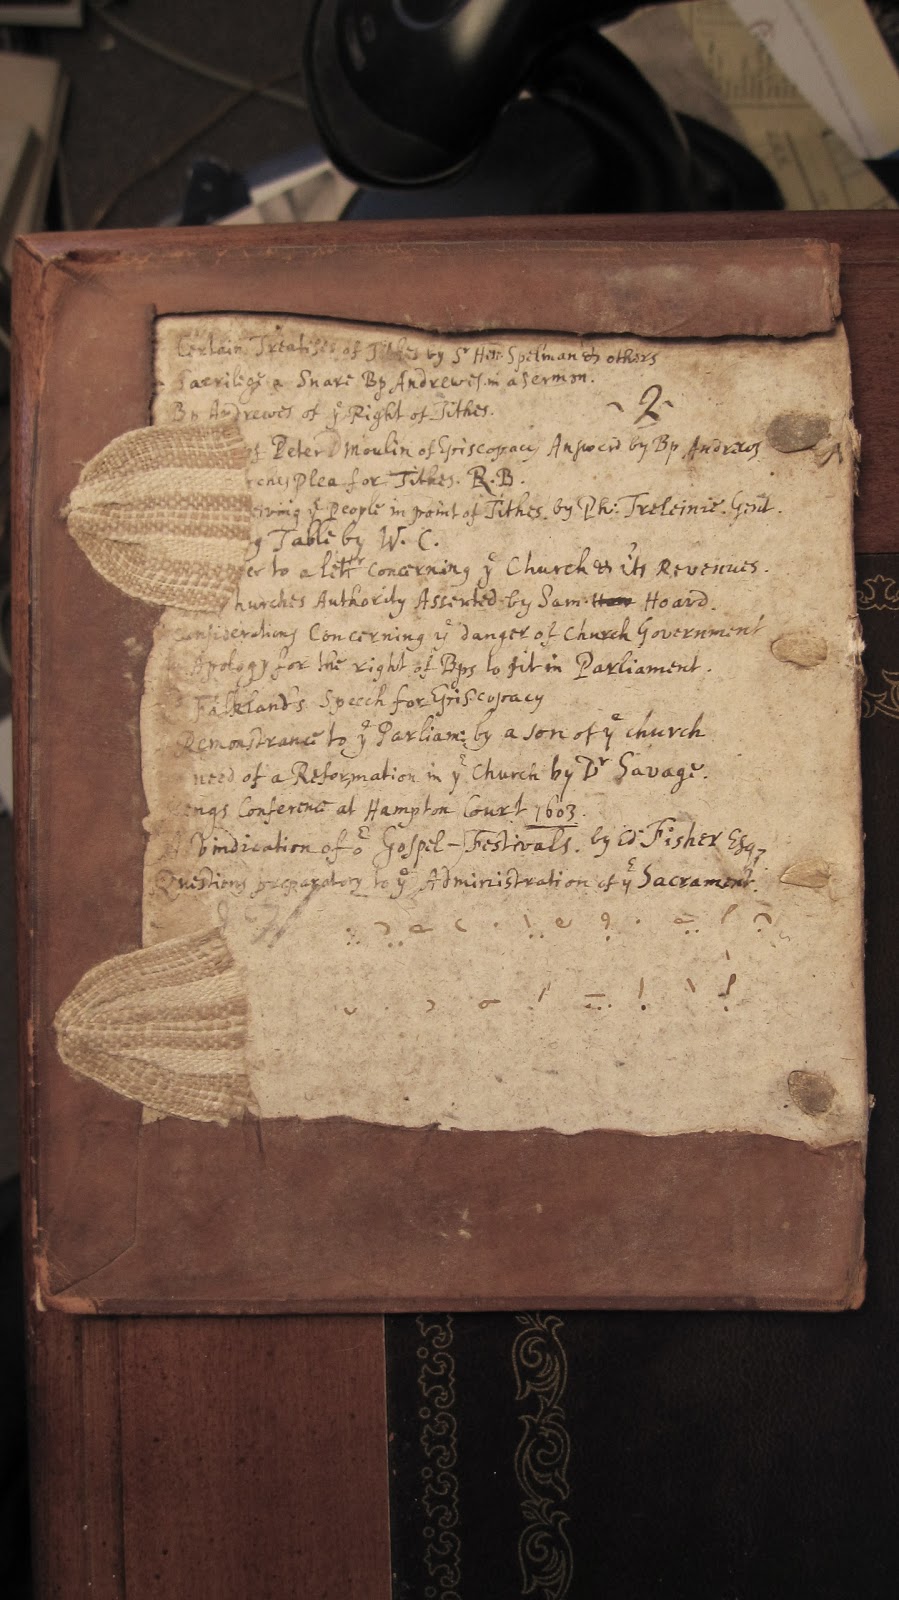 Certain Treatises of Tithes by Sr Hen: Spelman & others
Sacrilege a Snare Bp Andrewes in a sermon.
Bp Andrewes of ye Right of Tithes.
2
of Peter Moulin of Episcopacy Answerd by Bp Andrews
Plea for Tithes. R.B.
ye People in point of Tithes. by Ph: Treleinie. Gent.
Table by W. C.
er to a lettr concerning ye Church & its Revenues.
hurches Authority Asserted by Sam. Hoard.
Considerations Concerning ye danger of Church Government
Apology for the right of Bps to sit in Parliament.
Falkland's Speech for Episcopacy
Remonstrance to ye Parliam: by a son of ye church
need of a Reformation in ye Church by Dr Savage.
ings Conference at Hampton Court 1603.
A Vindication of Gospel-Festivals. by Ed: Fisher Esq
Questions preparatory to ye Administration of ye Sacrament.